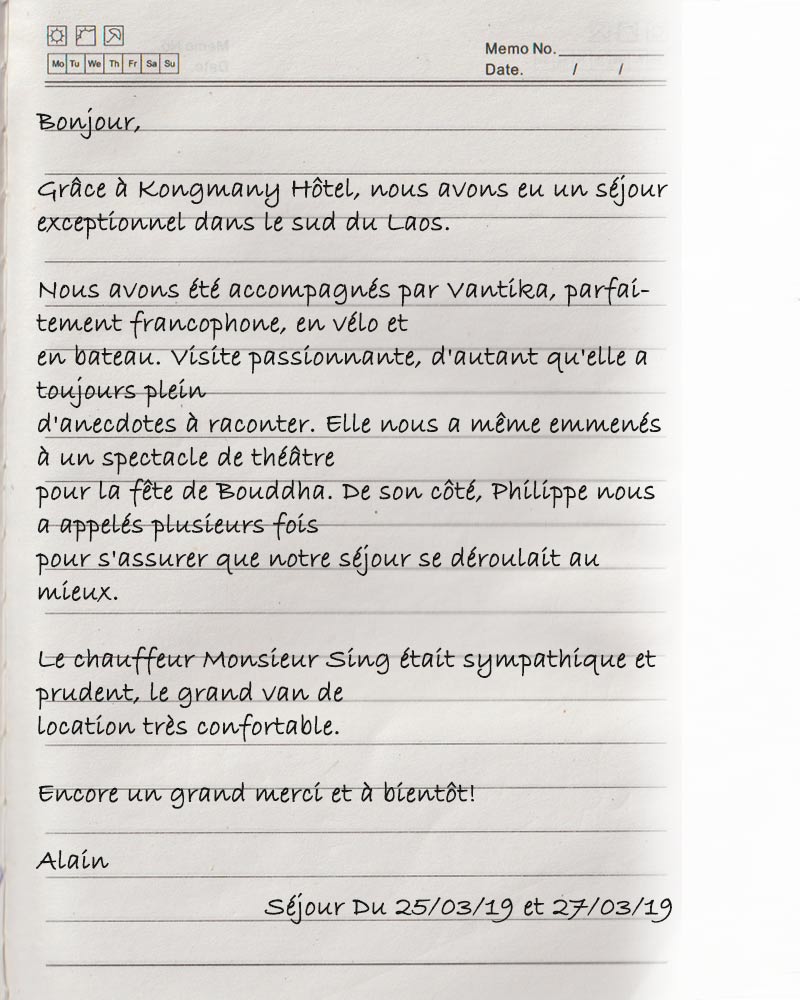 Mo Tu We Th Fr Sa Su
Memo No.
Date. / /
Bonjour,
Grâce à Kongmany Hôtel, nous avons eu un séjour
exceptionnel dans le sud du Laos.
Nous avons été accompagnés par Vantika, parfai-
tement francophone, en vélo et
en bateau. Visite passionnante, d'autant qu'elle a
toujours plein
d'anecdotes à raconter. Elle nous a même emmenés
à un spectacle de théâtre
pour la fête de Bouddha. De son côté, Philippe nous
a appelés plusieurs fois
pour s'assurer que notre séjour se déroulait au
mieux.
Le chauffeur Monsieur Sing était sympathique et
prudent, le grand van de
location très confortable.
Encore un grand merci et à bientôt!
Alain
Séjour Du 25/03/19 et 27/03/19